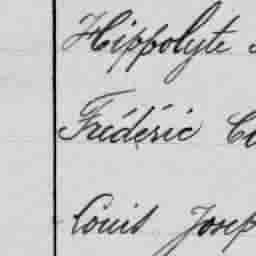 Hippolyte
Fréderic
Louis Josep